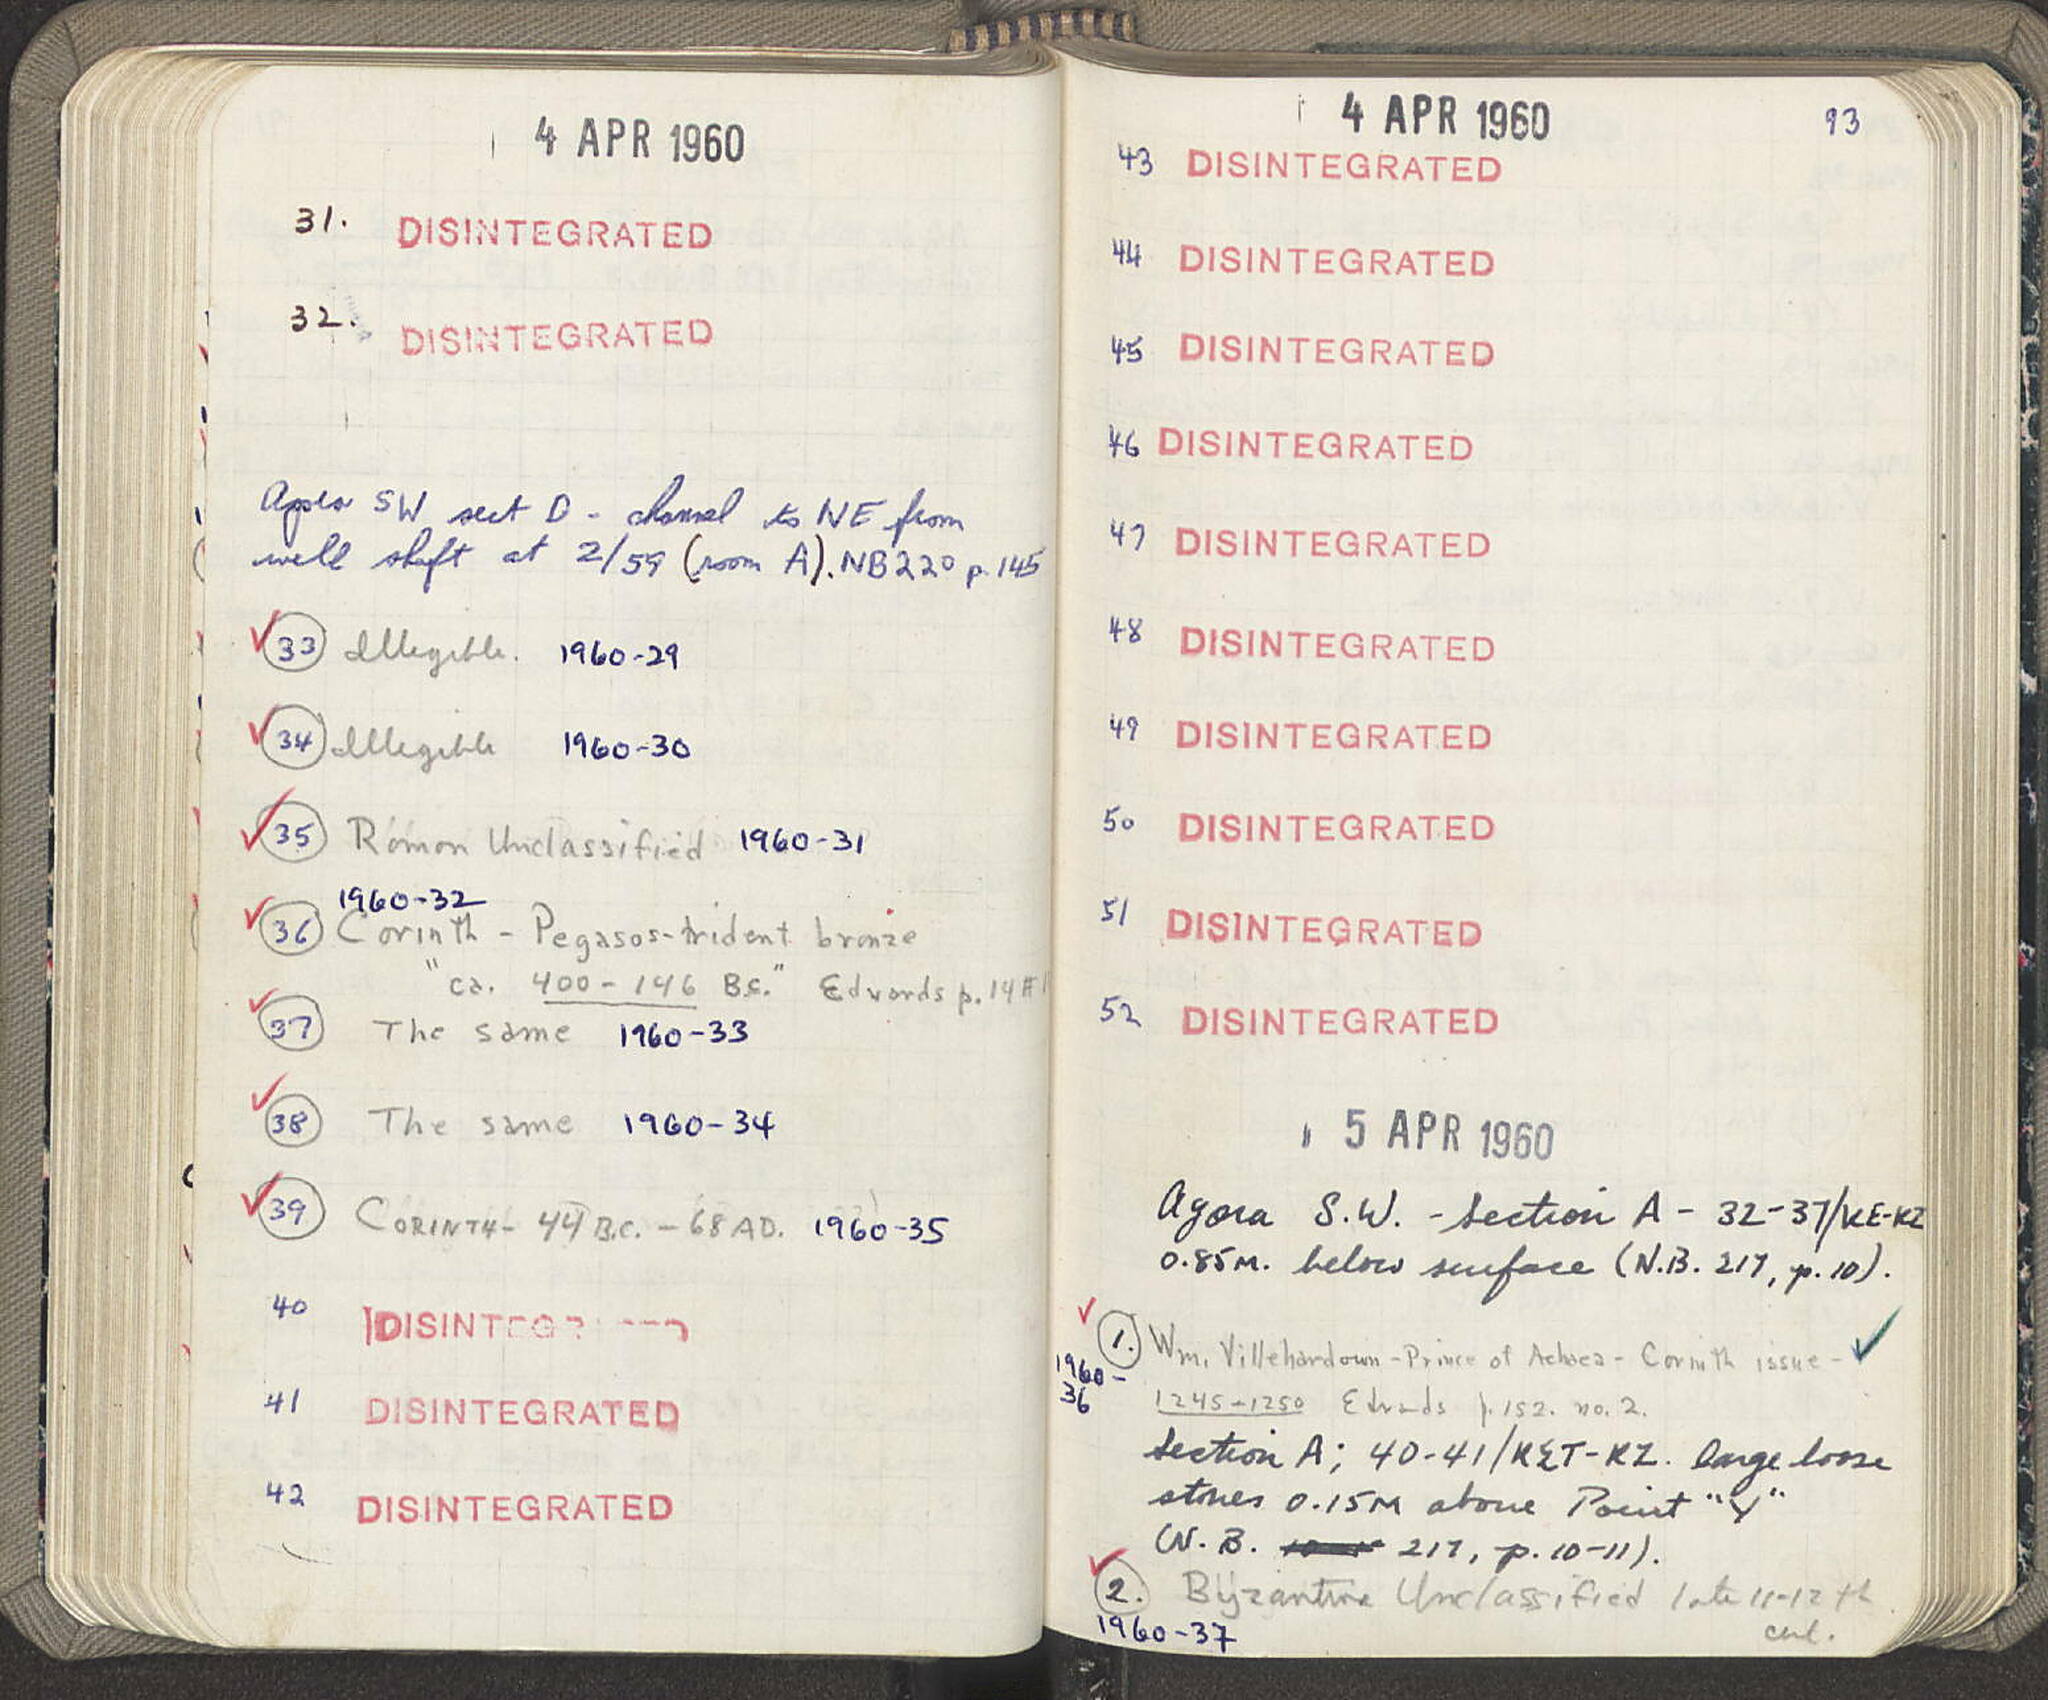 4 APR 1960
31. DISINTEGRATED
32. DISINTEGRATED
Agora SW sect D - channel to NE from
well shaft at 2/59 (room A). NB 220 p. 145
33 Illegible. 1960-29
34 Illegible 1960-30
35 Roman Unclassified 1960-31
1960-32
36 Corinth - Pegasos-trident bronze
"ca. 400-146 B.C." Edwards p. 14 #
37 The same 1960-33
38 The same 1960-34
39 CORINTH - 44 B.C. - 68 AD. 1960-35
40 DISINTEG
41 DISINTEGRATED
42 DISINTEGRATED
4 APR 1960 93
43 DISINTEGRATED
44 DISINTEGRATED
45 DISINTEGRATED
46 DISINTEGRATED
47 DISINTEGRATED
48 DISINTEGRATED
49 DISINTEGRATED
50 DISINTEGRATED
51 DISINTEGRATED
52 DISINTEGRATED
5 APR 1960
Agora S.W. - Section A - 32-37/KE-KZ
0.85M. below surface (N.B. 217, p. 10).
1. Wm. Villehardouin - Prince of Achaea - Corinth issue -
1960-
36
1245-1250 Edwards p. 152. no. 2.
Section A; 40-41/KΣT-KZ. large loose
stones 0.15M above Point "Y"
(N. B. 217, p. 10-11).
2. Byzantine Unclassified late 11-12th
cent.
1960-37